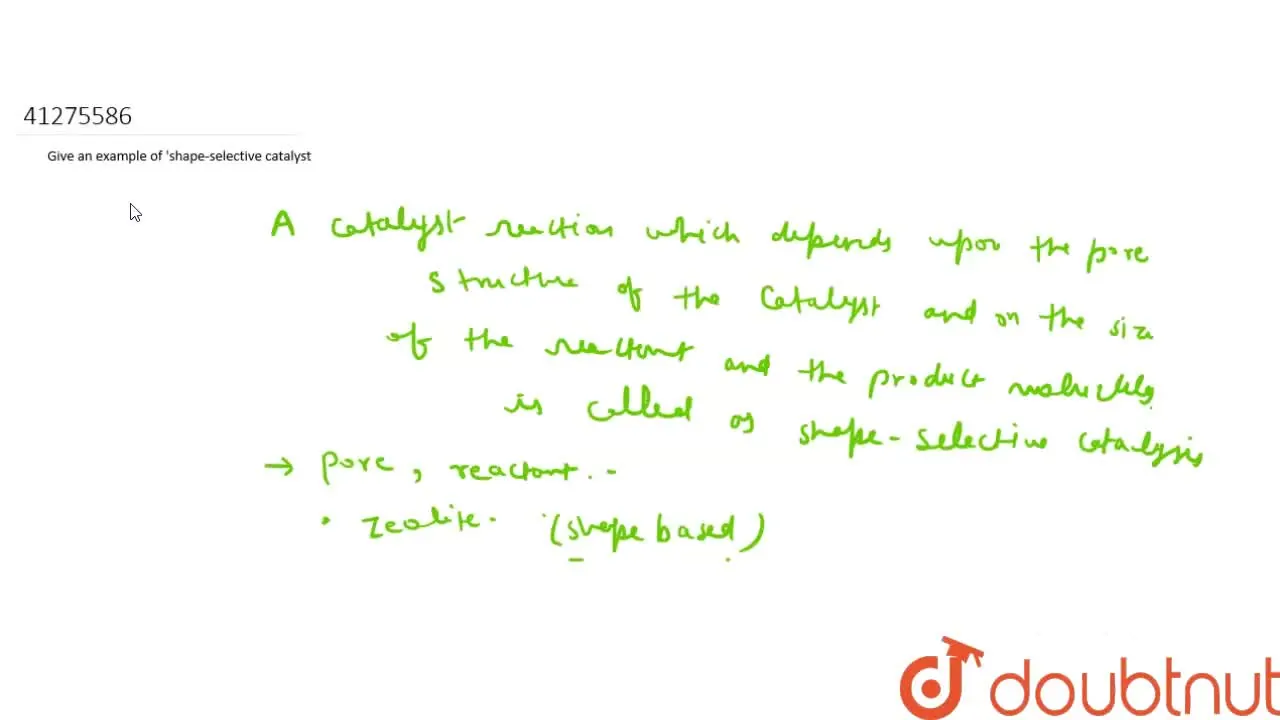 41275586
Give an example of 'shape-selective catalyst
A catalyst reaction which depends upon the pore
structure of the catalyst and on the size
of the reactant and the product molecules
is called as shape-selective catalysis
→ pore, reactant..-
• zeolite. (shape based)
doubtnut